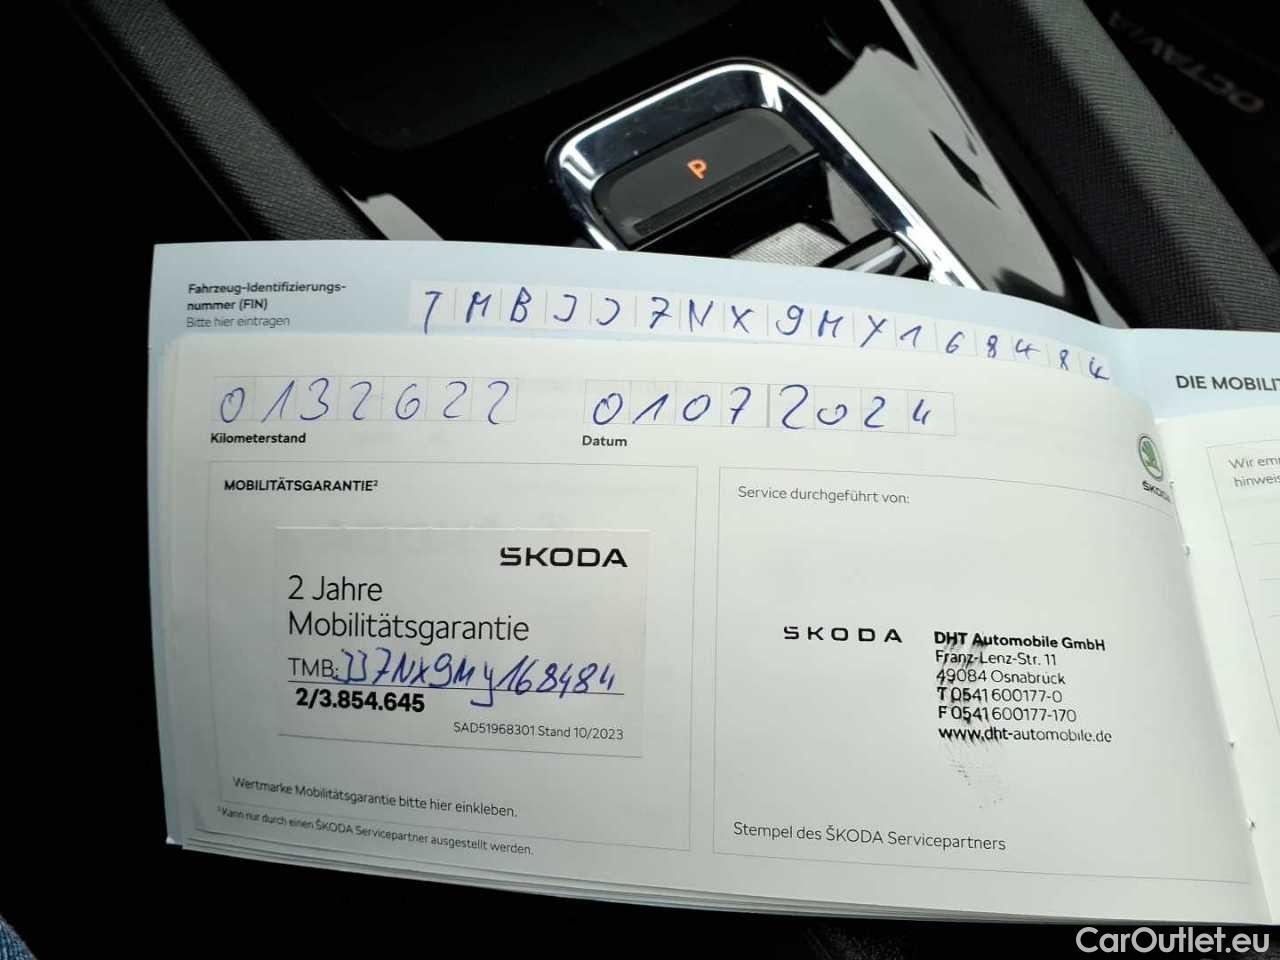 P
OCTAVIA
Fahrzeug-Identifizierungs-
nummer (FIN)
Bitte hier eintragen
TMBJJ7NX9MY168484
0132622
01072024
Kilometerstand
Datum
DIE MOBILIT
MOBILITÄTSGARANTIE²
SKODA
2 Jahre
Mobilitätsgarantie
TMB:JJ7NX9My168484
2/3.854.645
SAD51968301 Stand 10/2023
Wertmarke Mobilitätsgarantie bitte hier einkleben.
²Kann nur durch einen ŠKODA Servicepartner ausgestellt werden.
ŠKODA
Service durchgeführt von:
SKODA
DHT Automobile GmbH
Franz-Lenz-Str. 11
49084 Osnabrück
T 0541 600177-0
F 0541 600177-170
www.dht-automobile.de
Stempel des ŠKODA Servicepartners
Wir em
hinweis
CarOutlet.eu